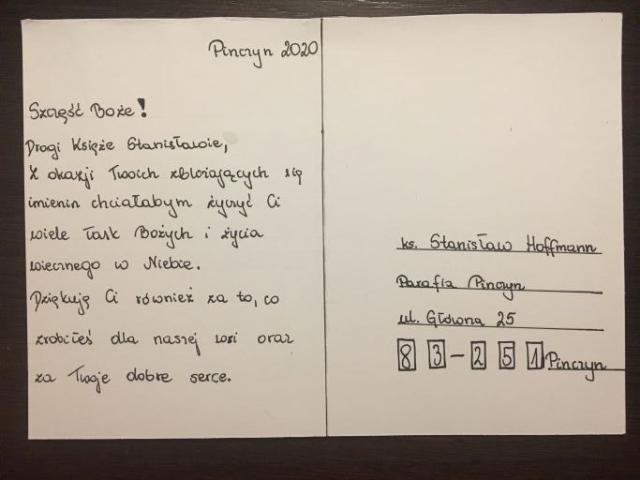 Pinczyn 2020
Szczęść Boże!
Drogi Księże Stanisławie,
Z okazji Twoich zbliżających się
imienin chciałabym życzyć Ci
wiele łask Bożych i życia
wiecznego w Niebie.
Dziękuję Ci również za to, co
zrobiłeś dla naszej wsi oraz
za Twoje dobre serce.
ks. Stanisław Hoffmann
Parafia Pinczyn
ul. Główna 25
83-251 Pinczyn